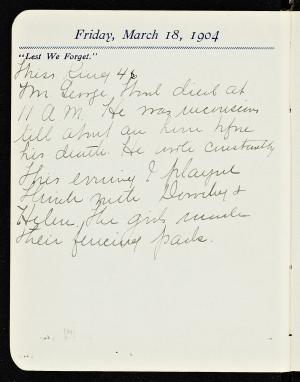 Friday, March 18, 1904
"Lest We Forget."
Mr. George, Hunt died at
11 A.M. He was unconscious
till about an hour before
his death. He wrote constantly
This evening I played
Flinch with Dorothy &
Helen, the girls made
their fencing pads.